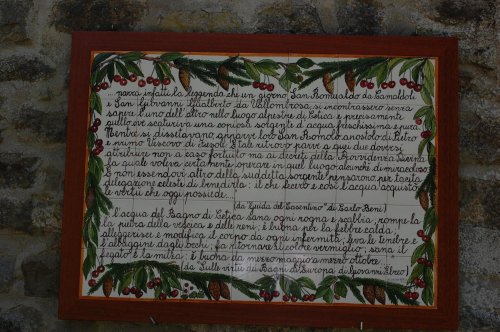 ... narra infatti la leggenda che un giorno, San Romualdo da Camaldoli
e San Giovanni Gualberto da Vallombrosa, si incontrassero senza
sapere l'uno dell'altro nello luogo alpestre di Cetica e precisamente
quivi ove scaturiva una copiosa sorgente d'acqua freschissima e pura.
Mentre si dissetavano apparve loro San Romolo apostolo di Pietro
e primo Vescovo di Fiesole. Tale ritrovo parve a quei due doversi
attribuire non a caso fortuito ma ai decreti della Provvidenza Divina
la quale voleva certamente operare in quel luogo alcunchè di miracoloso
E non essendovi altro della suddetta sorgente pensarono, per tanta
delegazione celeste di benedirla: il che fecero e così l'acqua acquistò
le virtù che oggi possiede.
(da "Guida del Casentino" di Carlo Beni)
L'acqua del Bagno di Cetica sana ogni rogna e scabbia, rompe la
la pietra della vescica e delle reni; è buona per la febbre calda;
alleggerisce e modifica il corpo da ogni infermità; leva le tenebre e
l'albuggine dagli occhi; fa ritornare il colore vermiglio; sana il
fegato e la milza; è buona da mezzo maggio a mezzo ottobre.
(da Sulle virtù dei Bagni di Europa di Giovanni Ebreo)